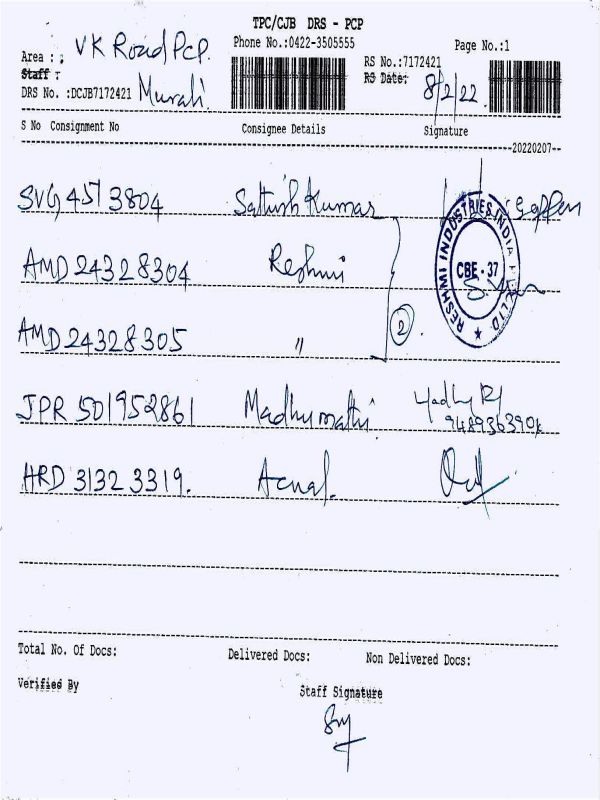 TPC/CJB DRS - PCP
Phone No.:0422-3505555
Page No.:1
Area : ; VK Road PCP.
RS No.:7172421
Staff :
RS Date: 8/2/22
DRS No. :DCJB7172421 Murali.
S No Consignment No Consignee Details Signature
20220207
SVG 4513804 Sathish Kumar
AMD 24328304 Reshmi
RESHMI INDUSTRIES INDIA
CBE - 37
AMD 24328305 "
2
JPR 501952861 Madhumathi
HRD 31323319.
Total No. Of Docs: Delivered Docs: Non Delivered Docs:
Verified By Staff Signature